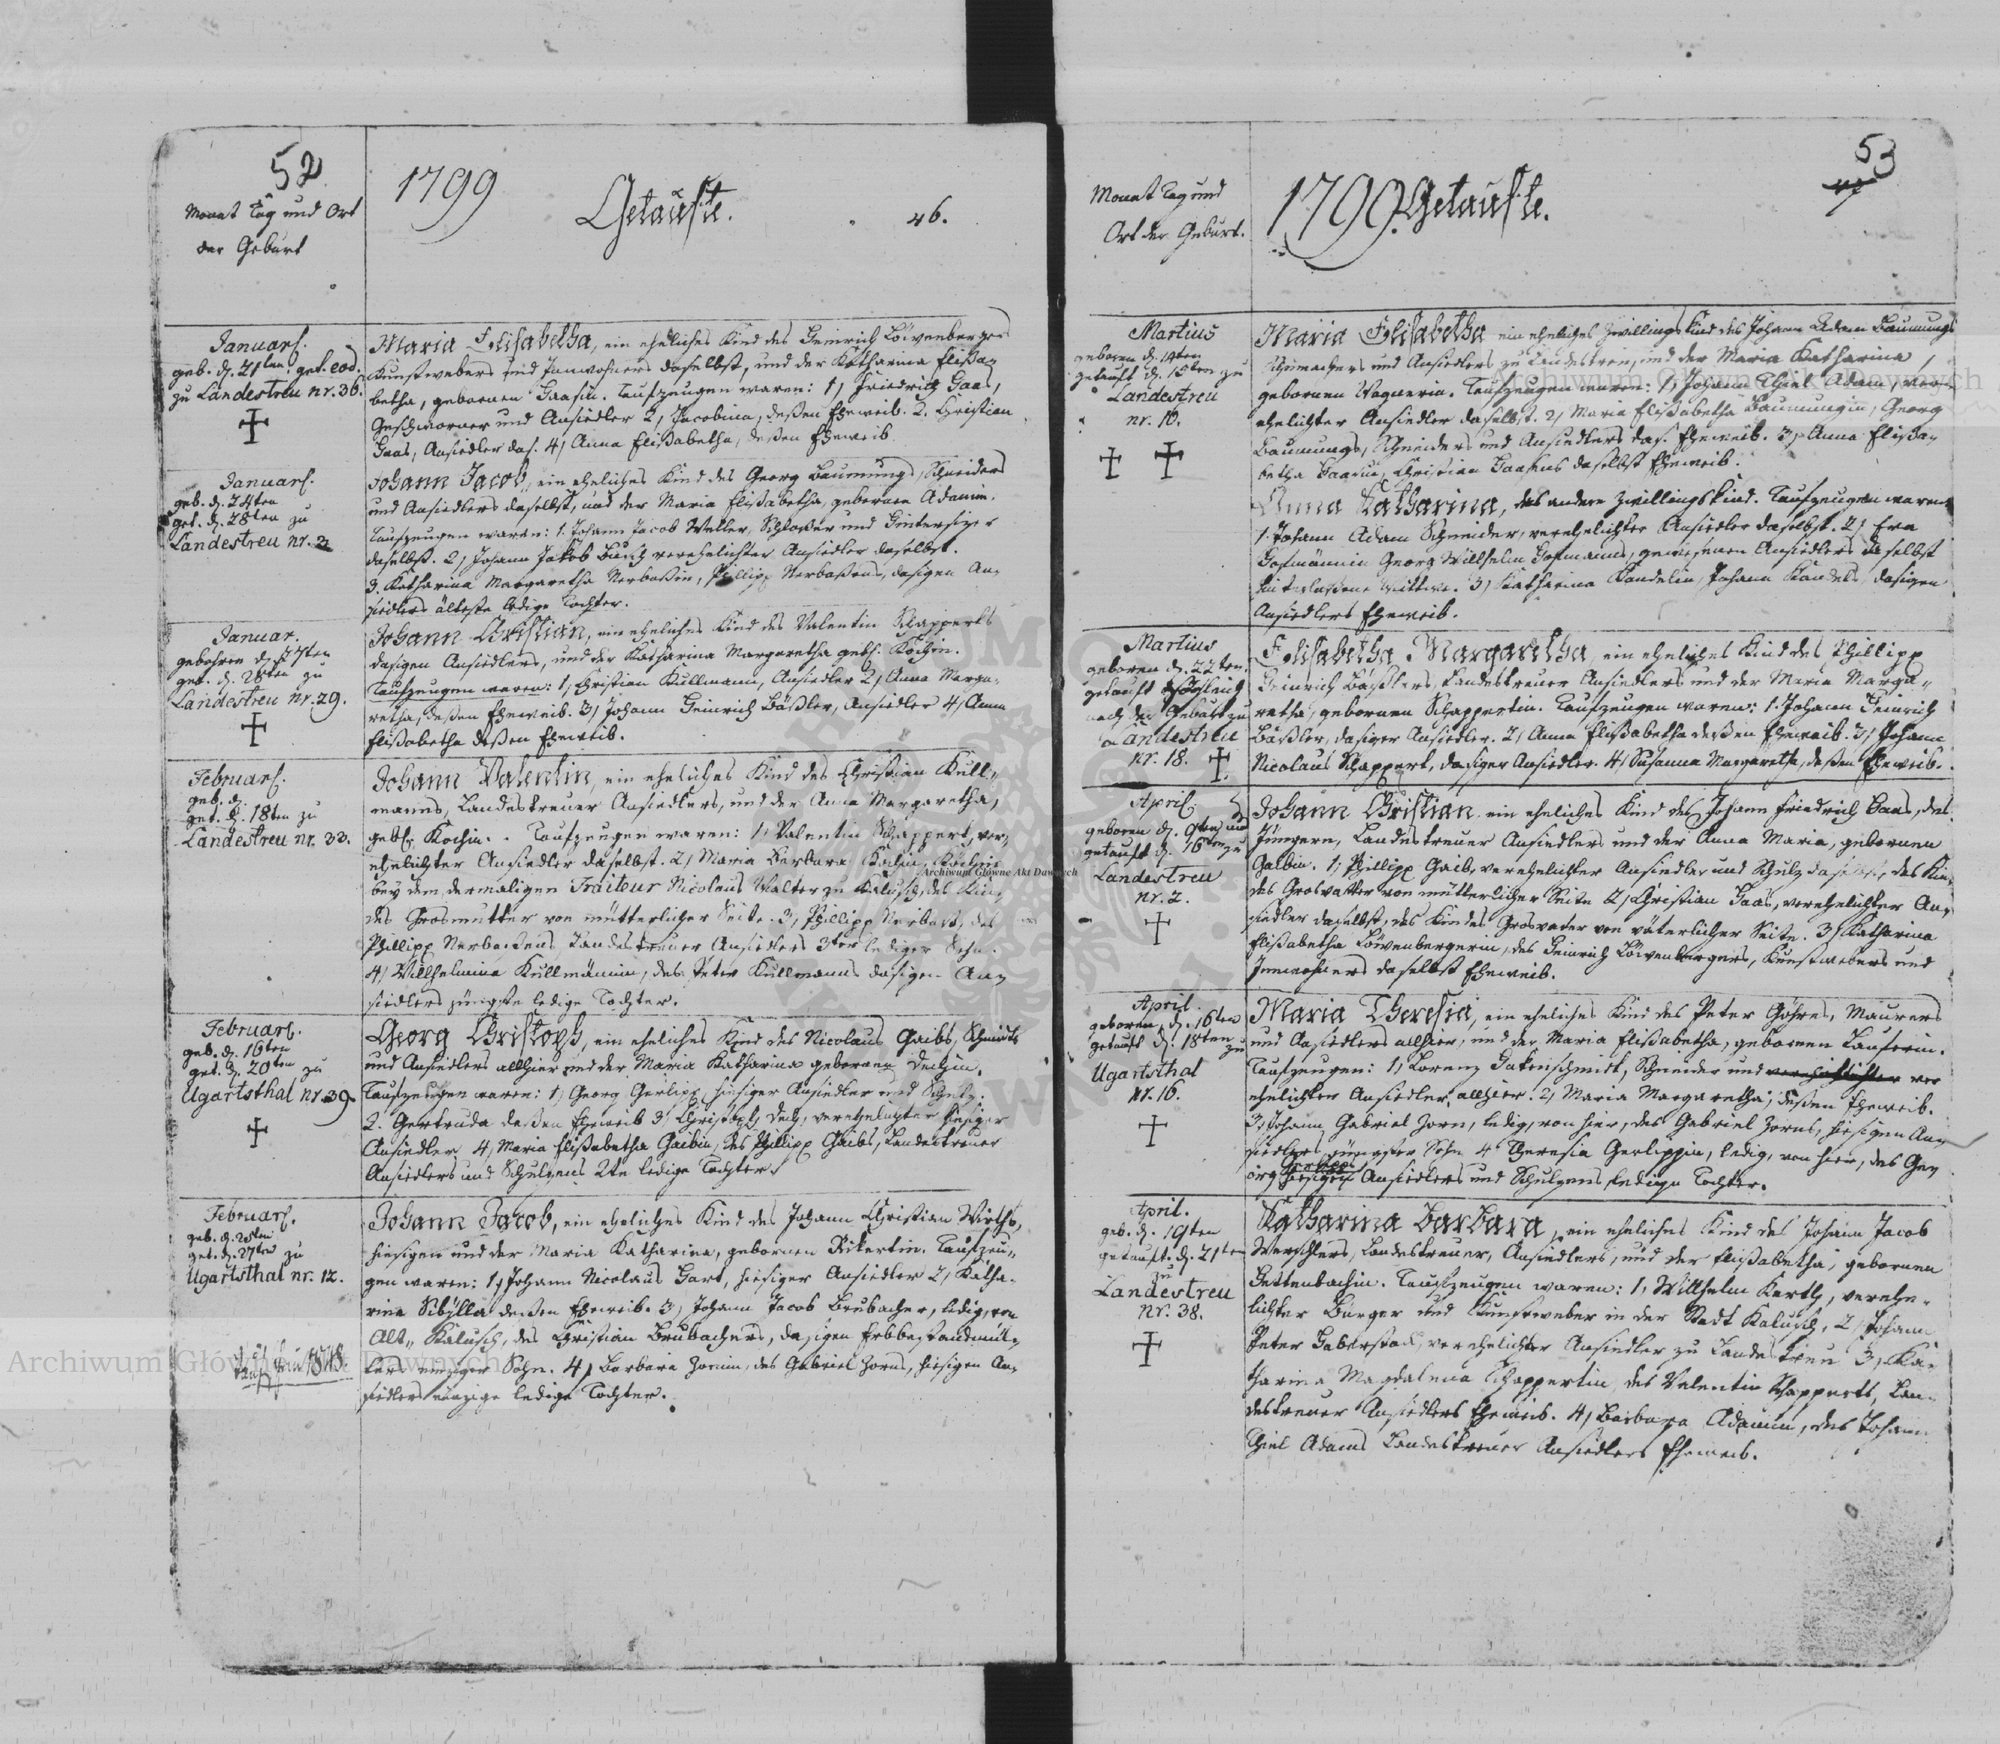 52
Monat Tag und Ort
der Geburt
1799
Getaufte.
46.
Januar.
geb. d. 21ten get. eod.
zu Landestreu nr. 36.
Maria Elisabetha, ein eheliches Kind des Heinrich Löwenbergers
Kunstwebers und Innwohners daselbst, und der Katharina Elisa-
betha, gebornen Haasin. Taufzeugen waren: 1, Friedrich Haas,
Geschworner und Ansiedler 2, Jacobina, deßen Eheweib. 3. Christian
Haas, Ansiedler das. 4, Anna Elisabetha, deßen Eheweib.
Januar.
geb. d. 24ten
get. d. 28ten zu
Landestreu nr. 2
Johann Jacob, ein eheliches Kind des Georg Baumungs, Schneiders
und Ansiedlers daselbst, und der Maria Elisabetha, gebornen Adamin.
Taufzeugen waren: 1. Johann Jacob Weller, Schloßer und
daselbst. 2, Johann Jakob verehelichter Ansiedler daselbst.
3. Katharina Margaretha Nerbaßin, Phillipp Nerbaßens, dasigen An-
siedlers älteste ledige Tochter.
Januar.
gebohren d. 27ten
get. d. 28ten zu
Landestreu nr. 29.
Johann Christian, ein eheliches Kind des Valentin Schapperts
dasigen Ansiedlers, und der Katharina Margaretha gebh. Kochin.
Taufzeugen waren: 1, Christian Kullmann, Ansiedler 2, Anna Marga-
retha, deßen Eheweib. 3, Johann Heinrich Bäßler, Ansiedler 4, Anna
Elisabetha deßen Eheweib.
Februar.
geb. d.
get. d. 18ten zu
Landestreu nr. 33.
Johann Valentin, ein eheliches Kind des Christian Kull-
manns, Landestreuer Ansiedlers, und der Anna Margaretha,
gebh. Kochin. Taufzeugen waren: 1, Valentin Schappert, ver-
ehelichter Ansiedler daselbst. 2, Maria Barbara Kochin, Köchin
bey dem dermaligen Traiteur Nicolaus Walter zu Kalusch, des Kin-
des Grosmutter von mütterlicher Seite. 3, Phillipp Nerbaß, des
Phillipp Nerbaßens Landestreuer Ansiedlers 3ter lediger Sohn.
4, Willhelmina Kullmännin, des Peter Kullmanns dasigen An-
siedlers jüngste ledige Tochter.
Februar.
geb. d. 16ten
get. d. 20ten zu
Ugartsthal nr. 39
Georg Christoph, ein eheliches Kind des Nicolaus Gaibs, Schmidts
und Ansiedlers allhier und der Maria Katharina gebornen
Taufzeugen waren: 1, Georg Gerlipp, hiesiger Ansiedler und Schulz.
2. Gertruda deßen Eheweib 3, Christoph verehelichter hiesiger
Ansiedler 4, Maria Elisabetha Gaibin, des Phillipp Gaibs, Landestreuer
Ansiedlers und Schulzens 2te ledige Tochter.
Februar.
geb. d. 25ten
get. d. 27ten zu
Ugartsthal nr. 12.
Johann Jacob, ein eheliches Kind des Johann Christian Wirths,
hiesigen und der Maria Katharina, gebornen Rikertin. Taufzeu-
gen waren: 1, Johann Nicolaus Hart, hiesiger Ansiedler 2, Katha-
rina Sibylla deßen Eheweib. 3, Johann Jacob Brubacher, ledig, von
Alt- Kalusch, des Christian Brubachers, dasigen Erbbestandmül-
lers einziger Sohn. 4, Barbara Zornin, des Gabriel Zorns, hiesigen An-
siedlers einzige ledige Tochter.
53
Monat Tag und
Ort der Geburt.
1799. Getaufte.
Martius
geboren d. 14ten
getauft d. 15ten zu
Landestreu
nr. 10.
Maria Elisabetha ein eheliches Zwillingskind des Johann Adam Baumungs
Schumachers und Ansiedlers zu Landestreu, und der Maria Katharina,
gebornen Wagnerin. Taufzeugen waren: 1, Johann Thiel Adam, ver-
ehelichter Ansiedler daselbst. 2, Maria Elisabetha Baumungin, Georg
Baumungs, Schneiders und Ansiedlers das. Eheweib. 3, Anna Elisa-
betha Haasin, Christian Haasens daselbst Eheweib.
Anna Katharina, das andere Zwillingskind. Taufzeugen waren:
1. Johann Adam Schneider, verehelichter Ansiedler daselbst. 2, Eva
Hofmännin Georg Willhelm Hofmanns, gewesenen Ansiedlers daselbst
hinterlaßene Wittwe. 3, Katharina Kandelin, Johann Kandels, dasigen
Ansiedlers Eheweib.
Martius
geboren d. 22ten.
getauft sogleich
nach der Geburt zu
Landestreu
nr. 18.
Elisabetha Margaretha, ein eheliches Kind des Phillipp
Heinrich Bäßlers, Landestreuer Ansiedlers und der Maria Marga-
retha, gebornen Schappertin. Taufzeugen waren: 1. Johann Heinrich
Bäßler, dasiger Ansiedler. 2, Anna Elisabetha deßen Eheweib. 3, Johann
Nicolaus Schappert, dasiger Ansiedler. 4, Susanna Margaretha, deßen Eheweib.
April
geboren d. 9ten und
getauft d. 16ten zu
Landestreu
nr. 2.
Johann Christian ein eheliches Kind des Johann Friedrich Haas, des
Jüngern, Landestreuer Ansiedlers und der Anna Maria, gebornen
Gaibin. 1, Phillipp Gaib, verehelichter Ansiedler und Schulz daselbst, des Kin-
des Grosvatter von mütterlicher Seite 2, Christian Haas, verehelichter An-
siedler daselbst, des Kindes Grosvater von väterlicher Seite. 3, Katharina
Elisabetha Löwenbergerin, des Heinrich Löwenbergers, Kunstwebers und
Innwohners daselbst Eheweib.
April
geboren, d. 16ten
getauft d. 18ten zu
Ugartsthal
nr. 16.
Maria Theresia, ein eheliches Kind des Peter Göhres, Maurers
und Ansiedlers allhier, und der Maria Elisabetha, gebornen Lauserin.
Taufzeugen: 1, Lorenz Hakenschmidt, Schneider und ver
ehelichter Ansiedler, allhier. 2, Maria Margaretha, deßen Eheweib.
3, Johann Gabriel Zorn, ledig, von hier, des Gabriel Zorns, hiesigen An-
siedlers jüngster Sohn 4, Theresia Gerlippin, ledig, von hier, des Ge-
org Gerlipps Ansiedlers und Schulzens ledige Tochter.
April.
geb. d. 19ten
getauft d. 21ten
zu
Landestreu
nr. 38.
Katharina Barbara, ein eheliches Kind des Johann Jacob
Werschlers, Landestreuer, Ansiedlers, und der Elisabetha, gebornen
Bettenbachin. Taufzeugen waren: 1, Willhelm Kerth, verehe-
lichter Bürger und Kunstweber in der Stadt Kalusch, 2, Johann
Peter Haberstock, verehelichter Ansiedler zu Landestreu 3, Ka-
tharina Magdalena Schappertin, des Valentin Schapperts, Lan-
destreuer Ansiedlers Eheweib. 4, Barbara Adamin, des Johann
Thiel Adams Landestreuer Ansiedlers Eheweib.
Archiwum Główne Akt Dawnych